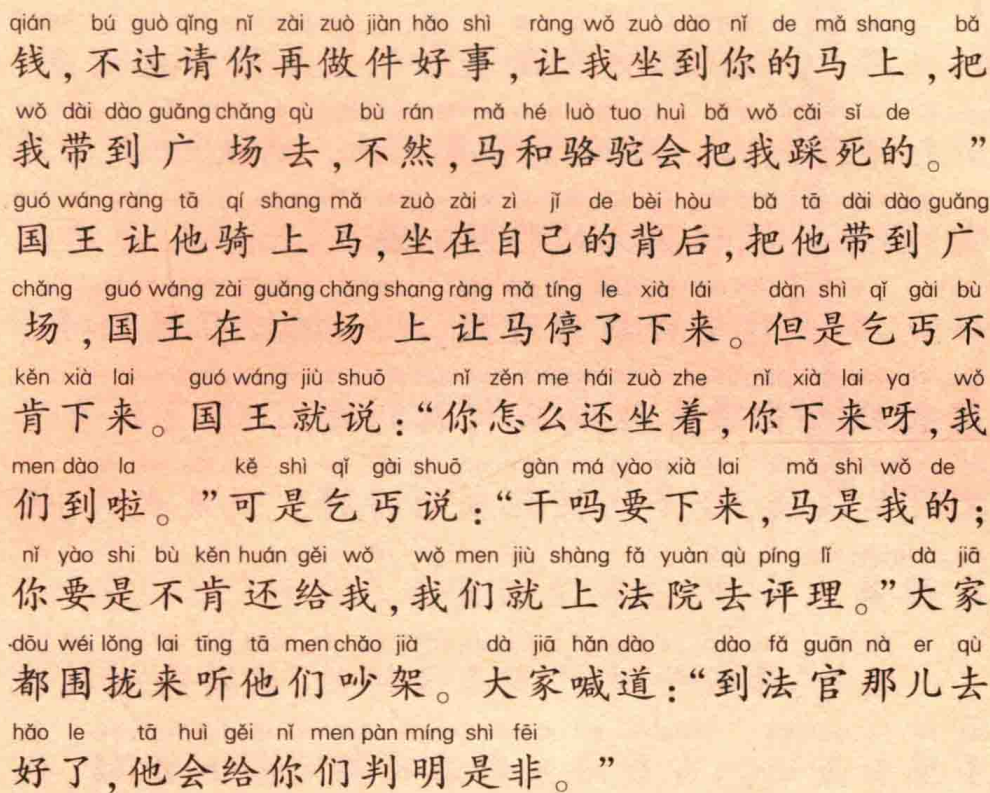 qián bú guò qǐng nǐ zài zuò jiàn hǎo shì ràng wǒ zuò dào nǐ de mǎ shang bǎ
钱，不过请你再做件好事，让我坐到你的马上，把
wǒ dài dào guǎng chǎng qù bù rán mǎ hé luò tuo huì bǎ wǒ cǎi sǐ de
我带到广场去，不然，马和骆驼会把我踩死的。”
guó wáng ràng tā qí shang mǎ zuò zài zì jǐ de bèi hòu bǎ tā dài dào guǎng
国王让他骑上马，坐在自己的背后，把他带到广
chǎng guó wáng zài guǎng chǎng shang ràng mǎ tíng le xià lái dàn shì qǐ gài bù
场，国王在广场上让马停了下来。但是乞丐不
kěn xià lai guó wáng jiù shuō nǐ zěn me hái zuò zhe nǐ xià lai ya wǒ
肯下来。国王就说：“你怎么还坐着，你下来呀，我
men dào la kě shì qǐ gài shuō gàn má yào xià lai mǎ shì wǒ de
们到啦。”可是乞丐说：“干吗要下来，马是我的；
nǐ yào shi bù kěn huán gěi wǒ wǒ men jiù shàng fǎ yuàn qù píng lǐ dà jiā
你要是不肯还给我，我们就上法院去评理。”大家
dōu wéi lǒng lai tīng tā men chǎo jià dà jiā hǎn dào dào fǎ guān nà er qù
都围拢来听他们吵架。大家喊道：“到法官那儿去
hǎo le tā huì gěi nǐ men pàn míng shì fēi
好了，他会给你们判明是非。”